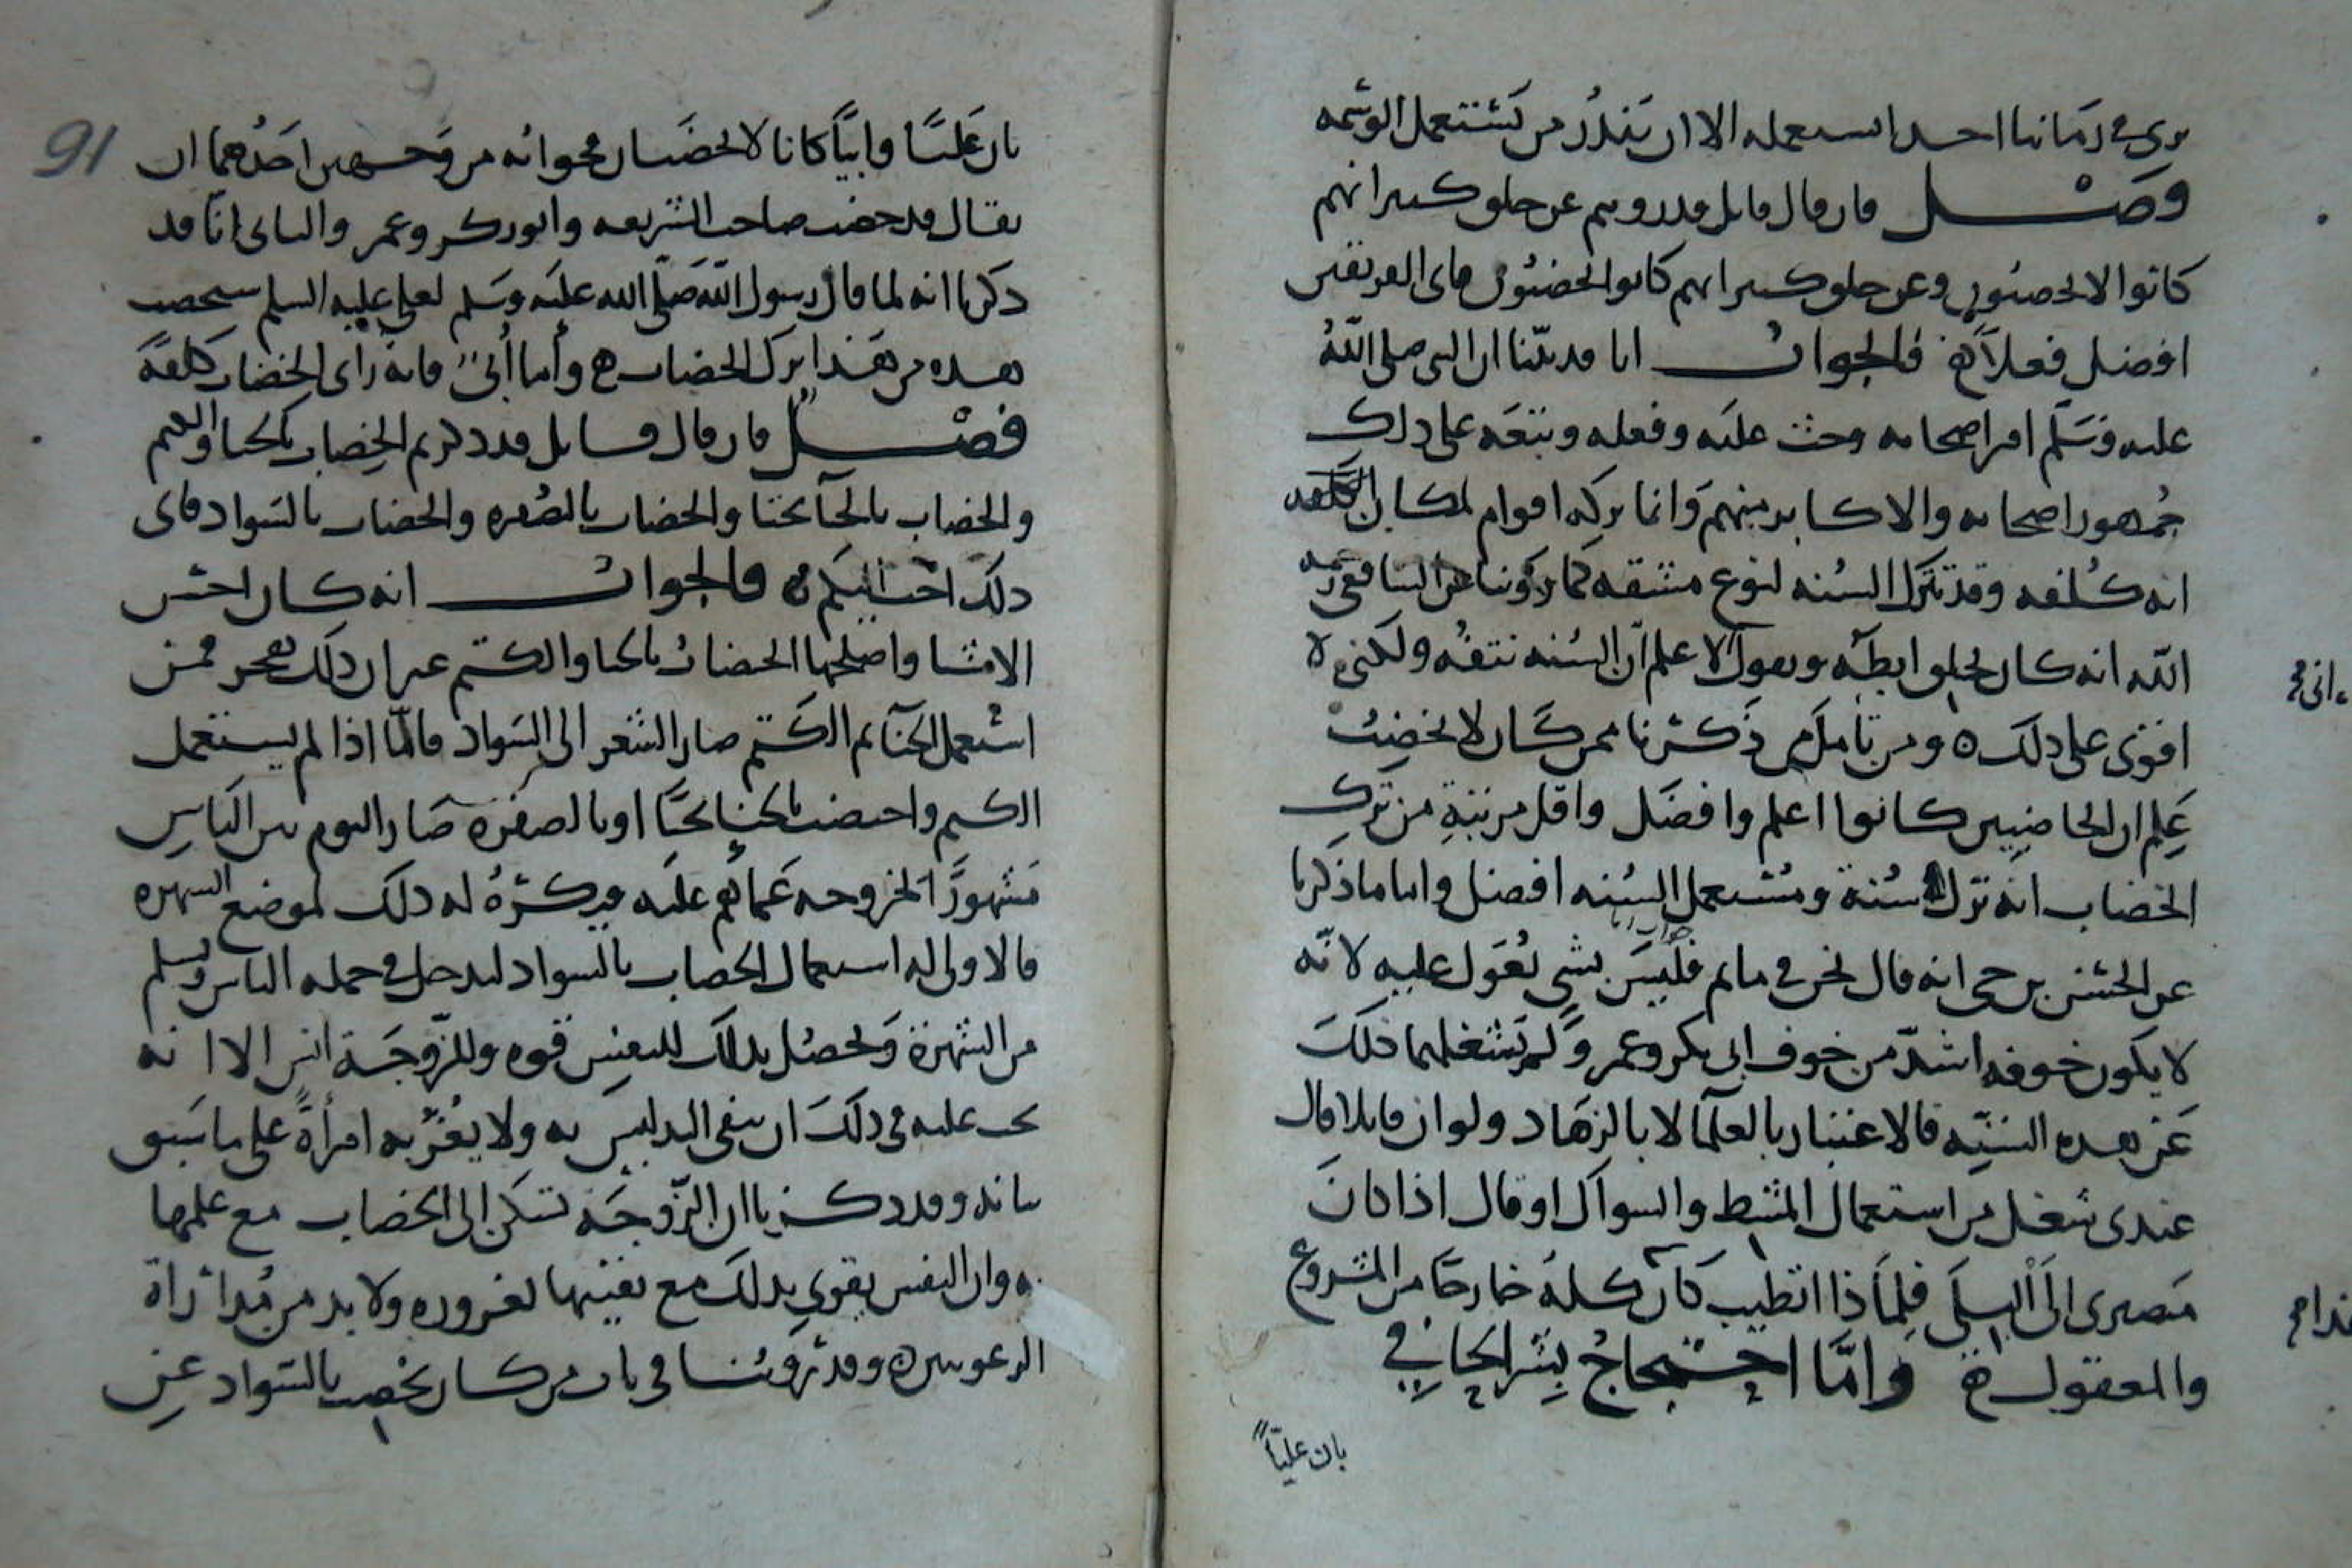 يرى في زماننا احدا استعمله الا ان يندر من يستعمل الوشمه
فصل فان قال قائل قد رويتم عن خلق كثير انهم
كانوا لا يخضبون وعن خلق كثير انهم كانوا يخضبون فاي الفريقين
افضل فعلا فالجواب انا قد بينا ان النبي صلى الله
عليه وسلم امر اصحابه وحث عليه وفعله وتبعه على ذلك
جمهور اصحابه والاكابر منهم وانما تركه اقوام لمكان الكلفه
انه كلفه وقد تترك السنه لنوع مشقه كما روينا عن الشافعي رحمه
الله انه كان يحلق ابطه ويقول اعلم ان السنه نتفه ولكني لا
اني
اقوى على ذلك ومن تامل من ذكرنا ممن كان لا يخضب
علم ان الخاضبين كانوا اعلم وافضل واقل مرتبة من ترك
الخضاب انه ترك سنة ومستعمل السنه افضل واما ما ذكرنا
عن الحسن بن حي انه قال نحن في ماتم فليس بشي يعول عليه لانه
لا يكون خوفه اشد من خوف ابي بكر وعمر ولم يشغلهما ذلك
عن هذه السنه فالاعتبار بالعلما لا بالزهاد ولو ان قايلا قال
عندي شغل من استعمال المشط والسواك او قال اذا كان
مصيري الى البلى فلماذا اتطيب كان كله خارجا من المشروع
والمعقول واما احتجاج بشر الحافي
بان عليا
91
بان عليا وابيا كانا لا يخضبان فجوابه من وجهين احدهما ان
يقال قد خضب صاحب الشريعه وابو بكر وعمر والثاني انا قد
ذكرنا انه لما قال رسول الله صلى الله عليه وسلم لعلي عليه السلم ستخضب
هذه من هذا ترك الخضاب واما ابي فانه راى الخضاب كلفة
فصل فان قال قايل قد ذكرتم الخضاب بالحنا والكتم
والخضاب بالحنا بحتا والخضاب بالصفره والخضاب بالسواد فاي
ذلك احب اليكم فالجواب انه كان احسن
الاشيا واصلحها الخضاب بالحنا والكتم غير ان ذلك هجر فمن
استعمل الحنا ثم الكتم صار الشعر الى السواد فاما اذا لم يستعمل
الكتم واختضب بالحنا بحتا او بالصفره صار اليوم بين الناس
مشهورا لخروجه عما هم عليه فيكره له ذلك لموضع الشهره
فالاولى له استعمال الخضاب بالسواد ليدخل في جمله الناس ويسلم
من الشهرة ويحصل بذلك للنفس قوه وللزوجة انس الا انه
يجب عليه في ذلك ان ينفي التدليس به ولا يغر به امرأة على ما سبق
بيانه وقد ذكرنا ان الزوجة تسكن الى الخضاب مع علمها
به وان النفس تقوى بذلك مع يقينها لغروره ولا بد من مداراة
الرعونين وقد روينا في باب من كان يخضب بالسواد عن